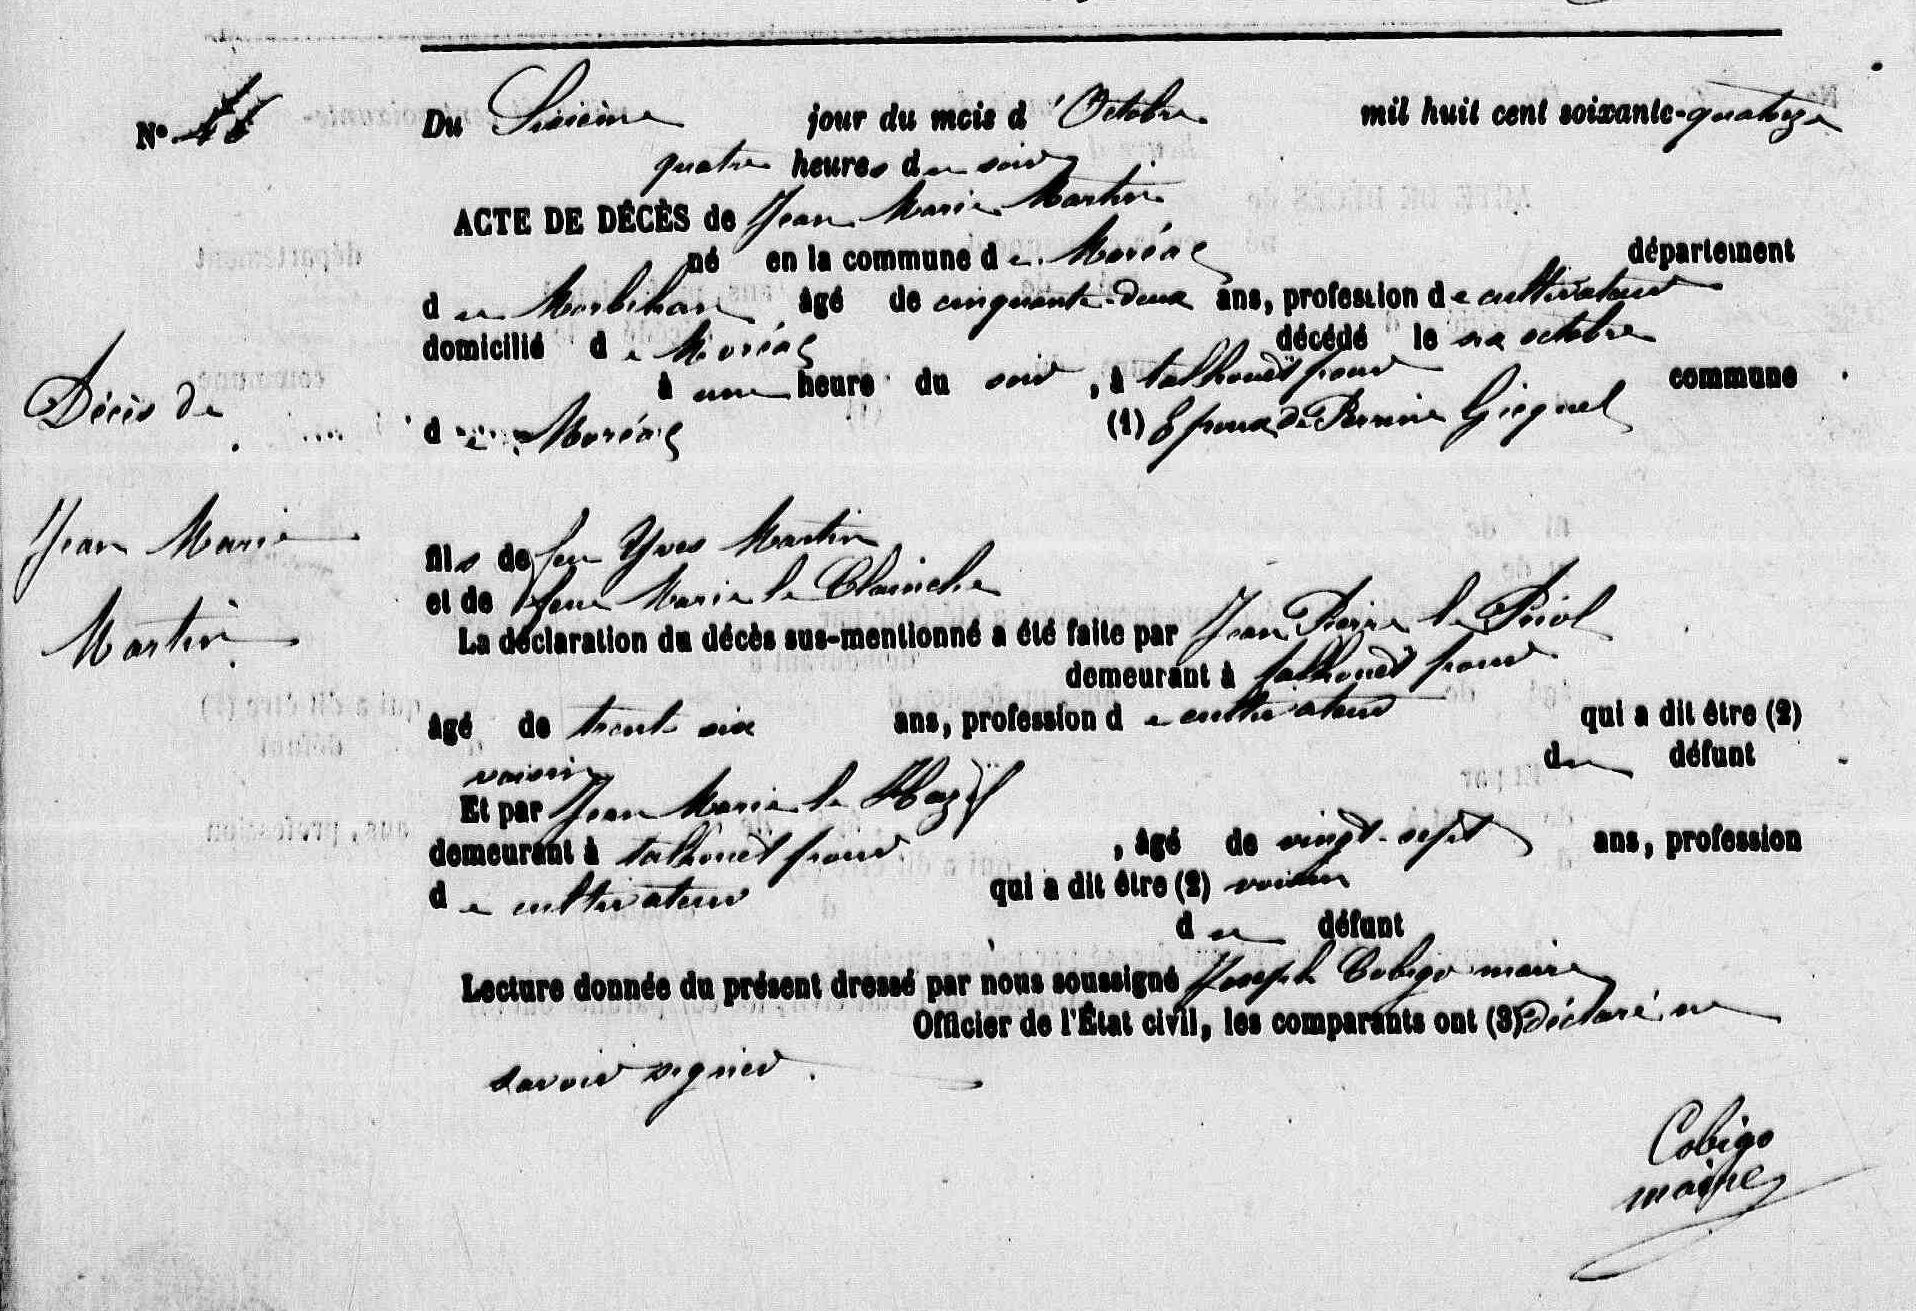 N° 
Du Sixième jour du mois d'Octobre mil huit cent soixante-quatorze
quatre heures du soir
ACTE DE DÉCÈS de Jean Marie Martin
né en la commune de Moréac département
du Morbihan âgé de cinquante-deux ans, profession de cultivateur
domicilié de Moréac décédé le six octobre
à une heure du soir, à talhouët commune
de Moréac (1) Epoux de Perrine Gicquel
Décès de
Jean Marie
Martin
fils de feu Yves Martin
et de feue Marie le Clainche
La déclaration du décès sus-mentionné a été faite par Jean Pierre le Priol
demeurant à talhouët
âgé de trente six ans, profession de cultivateur qui a dit être (2)
voisin du défunt
Et par Jean Marie le
demeurant à talhouët , âgé de vingt-sept ans, profession
de cultivateur qui a dit être (2) voisin
du défunt
Lecture donnée du présent dressé par nous soussigné Joseph Cobigo maire
Officier de l'État civil, les comparants ont (3) déclaré ne
savoir signer.
Cobigo
maire